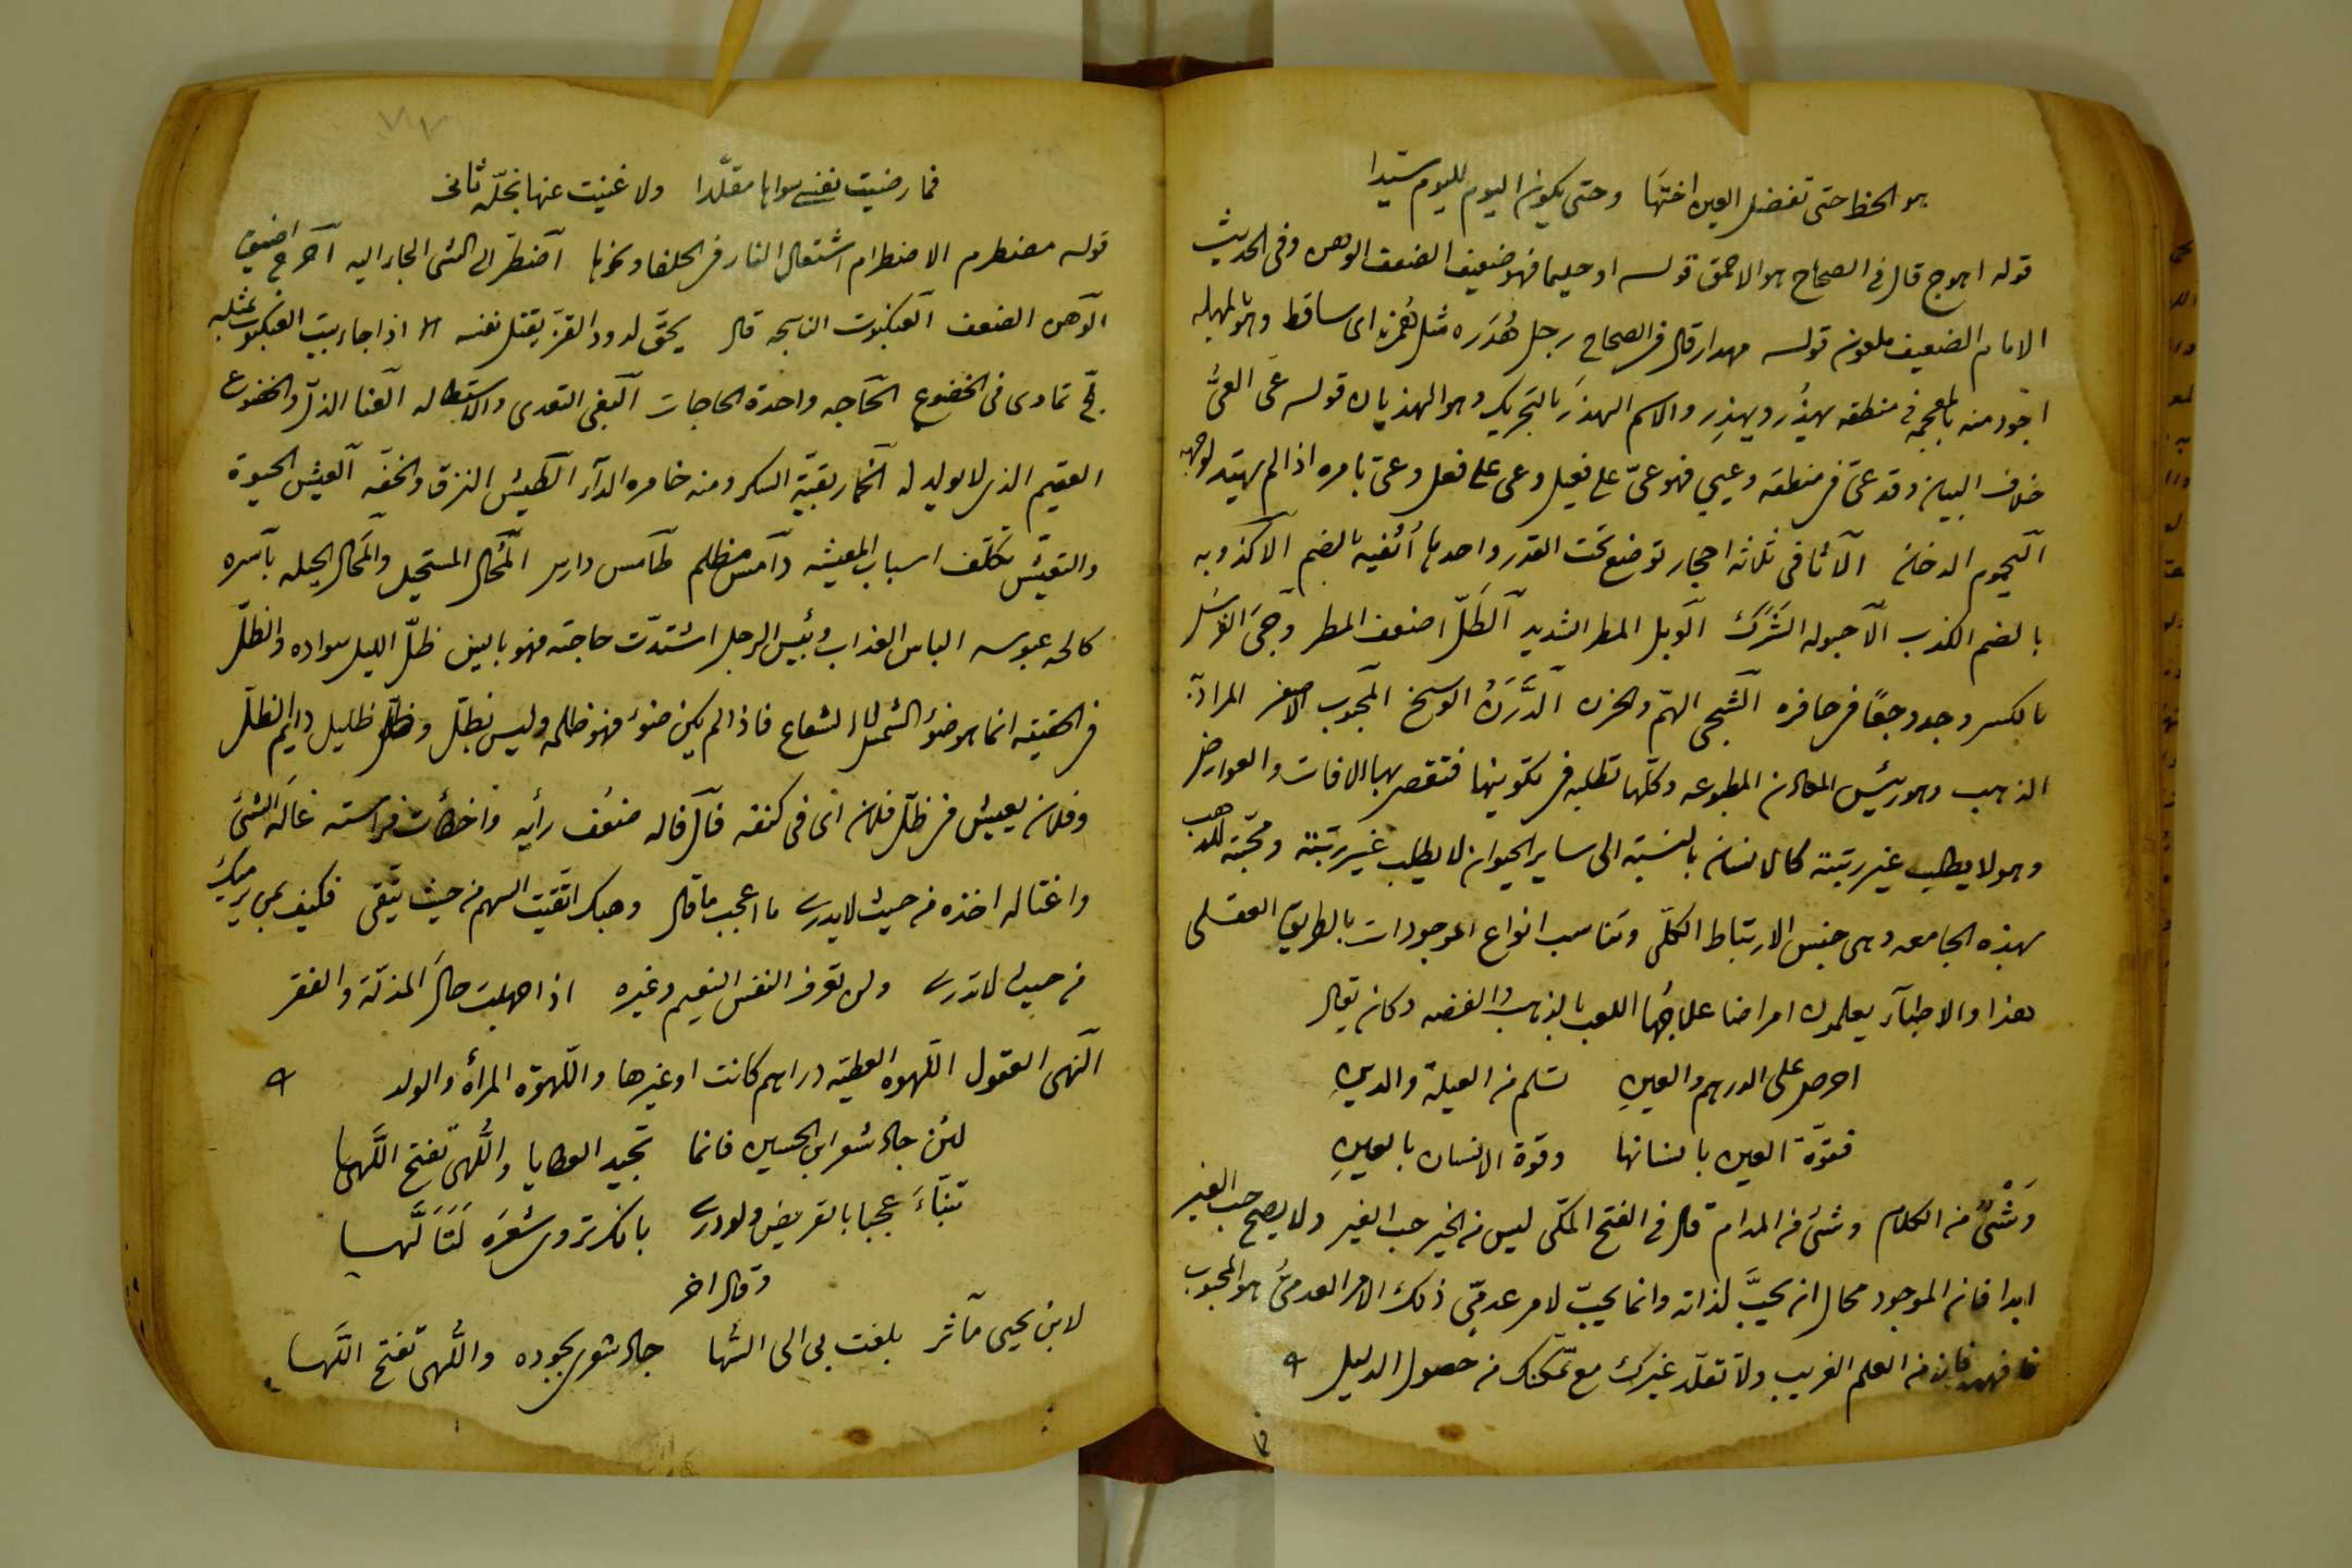 هو الحظ حتى تفضل العين اختها وحتى يكون اليوم لليوم سيدا
قوله اهوج قال في الصحاح هو الاحمق قوله او حليما فهو ضعيف الضعف الوهن وفي الحديث
الامام الضعيف ملعون قوله مهدار قال في الصحاح رجل هُدَرَه مثل هُمَزه اى ساقط وهو بالمهمله
اجود منه بالمعجمه في منطقه يهذُر ويهذِر والاسم الهذَر بالتحريك وهو الهذيان قوله عَى العىّ
خلاف البيان وقد عىّ في منطقه وعيي فهو عىّ على فعيل وعى على فعل وعىّ بامره اذا لم يهتد لوجهه
اليحموم الدخان الاثافى ثلاثه احجار توضع تحت القدر واحدها أثفيه بالضم الاكذوبه
بالضم الكذب الاحبوله الشَرَك الوبل المطر الشديد الطَلّ اضعف المطر وجىَ الفرس
بالكسر وجد وجعًا في حافره الشجى الهمّ والحزن الدَّرَنُ الوسخ المحبوب الاصفر المراد به
الذهب وهو رئيس المعادن المطبوعه وكلّها تطلبه في تكوينها فتقصر بها الافات والعوارض
وهو لا يطلب غير رتبته كالانسان بالنسبة الى ساير الحيوان لا يطلب غير رتبته ومحبّته للذهب
بهذه الجامعه وهى جنس الارتباط الكلّى وتناسب انواع الموجودات بالطريق العقلى
هذا والاطبآء يعلمون امراضا علاجُها اللعب بالذهب والفضه وكان يقال
احرص على الدرهم والعينِ تسلم من العيلة والدينِ
فقوّة العين بانسانها وقوة الانسان بالعينِ
وَشْىٌ من الكلام وشئ من المدام قال في الفتح المكّى ليس من الخير حب الغير ولا يصح حب الغير
ابدا فان الموجود محال ان يحبَّ لذاته وانما يحبّ لامر عدمىّ ذلك الامر العدمىُّ هو المحبوب
فافهم فانه من العلم الغريب ولا تقلّد غيرك مع تمكّنك من حصول الدليل
فما رضيت نفسى سواها مقلّدا ولا غنيت عنها بخلّه ثانى
قوله مضطرم الاضطرام اشتعال النار في الحلفا ونحوها اضطرّ الى الشئ الجاء اليه احرج اضيق
الوهن الضعف العنكبوت الناسجه قال يحقّ لدود القزّ يقتل نفسه اذا جاء بيت العنكبوت بمثله
لجّ تمادى في الخضوع الحاجه واحدة الحاجات البغى التعدى والاستطاله العنا الذلّ والخضوع
العقيم الذى لا يولد له الخمار بقيّة السكر ومنه خامره الدآء الطيش النزق والخفّه العيش الحيوة
والتعيّش تكلّف اسباب المعيشه دامس مظلم طامس دارس المُحال المستحيل والمَحال الحيله باسره
كالحه عبوسه الباس العذاب وبئيس الرجل اشتدّت حاجته فهو بائس ظلّ الليل سواده والظلّ
في الحقيقه انما هو ضوء الشمس لا الشعاع فاذا لم يكن ضوء فهو ظلمه وليس بظلّ وظلّ ظليل دايم الظلّ
وفلان يعيش في ظلّ فلان اى في كنفه فال فاله ضعُف رأيه واخطأت فراسته غاله الشئ
واغتاله اخذه من حيث لا يدرى ما اعجب ما قال وهبك اتّقيت السهم من حيث يتّقى فكيف بمن يرميك
من حيث لا تدرى ولن تعرف النفس النعيم وغيره اذا جهلت حال المذلّة والفقر
النهى العقول اللهوه العطيّه دراهم كانت او غيرها واللّهوَة المرأة والولد
لئن جاد شعر ابن الحسين فانما تجيد العطايا واللُّهى تفتح اللَّهى
تنبّاءَ عجبا بالقريض ولو درى بانك تروى شعرَه لَتَأَلَّهَا
وقال اخر
لابن يحيى مآثر بلغت بى الى السُّها جاد شعرى بجوده واللُّهى تفتح اللَّها